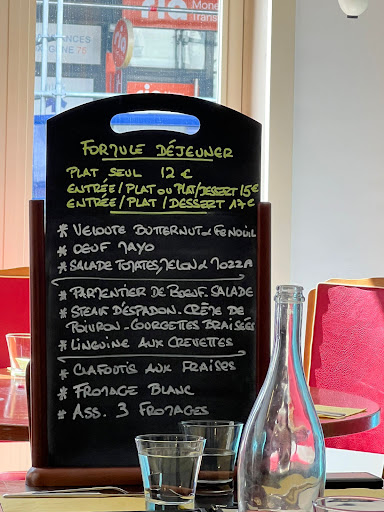 ria
Mone
Trans
ria
FORMULE DÉJEUNER
PLAT SEUL 12 €
ENTRÉE/PLAT OU PLAT/DESSERT 15€
ENTRÉE/PLAT/DESSERT 17€
* VELOUTE BUTTERNUT & FENOUIL
* OEUF MAYO
* SALADE TOMATES, MELON & MOZZA
* PARMENTIER DE BOEUF. SALADE
* STEAK D'ESPADON. CRÈME DE
POIVRON. COURGETTES BRAISÉES
* LINGUINE AUX CREVETTES
* CLAFOUTIS AUX FRAISES
* FROMAGE BLANC
* ASS. 3 FROMAGES